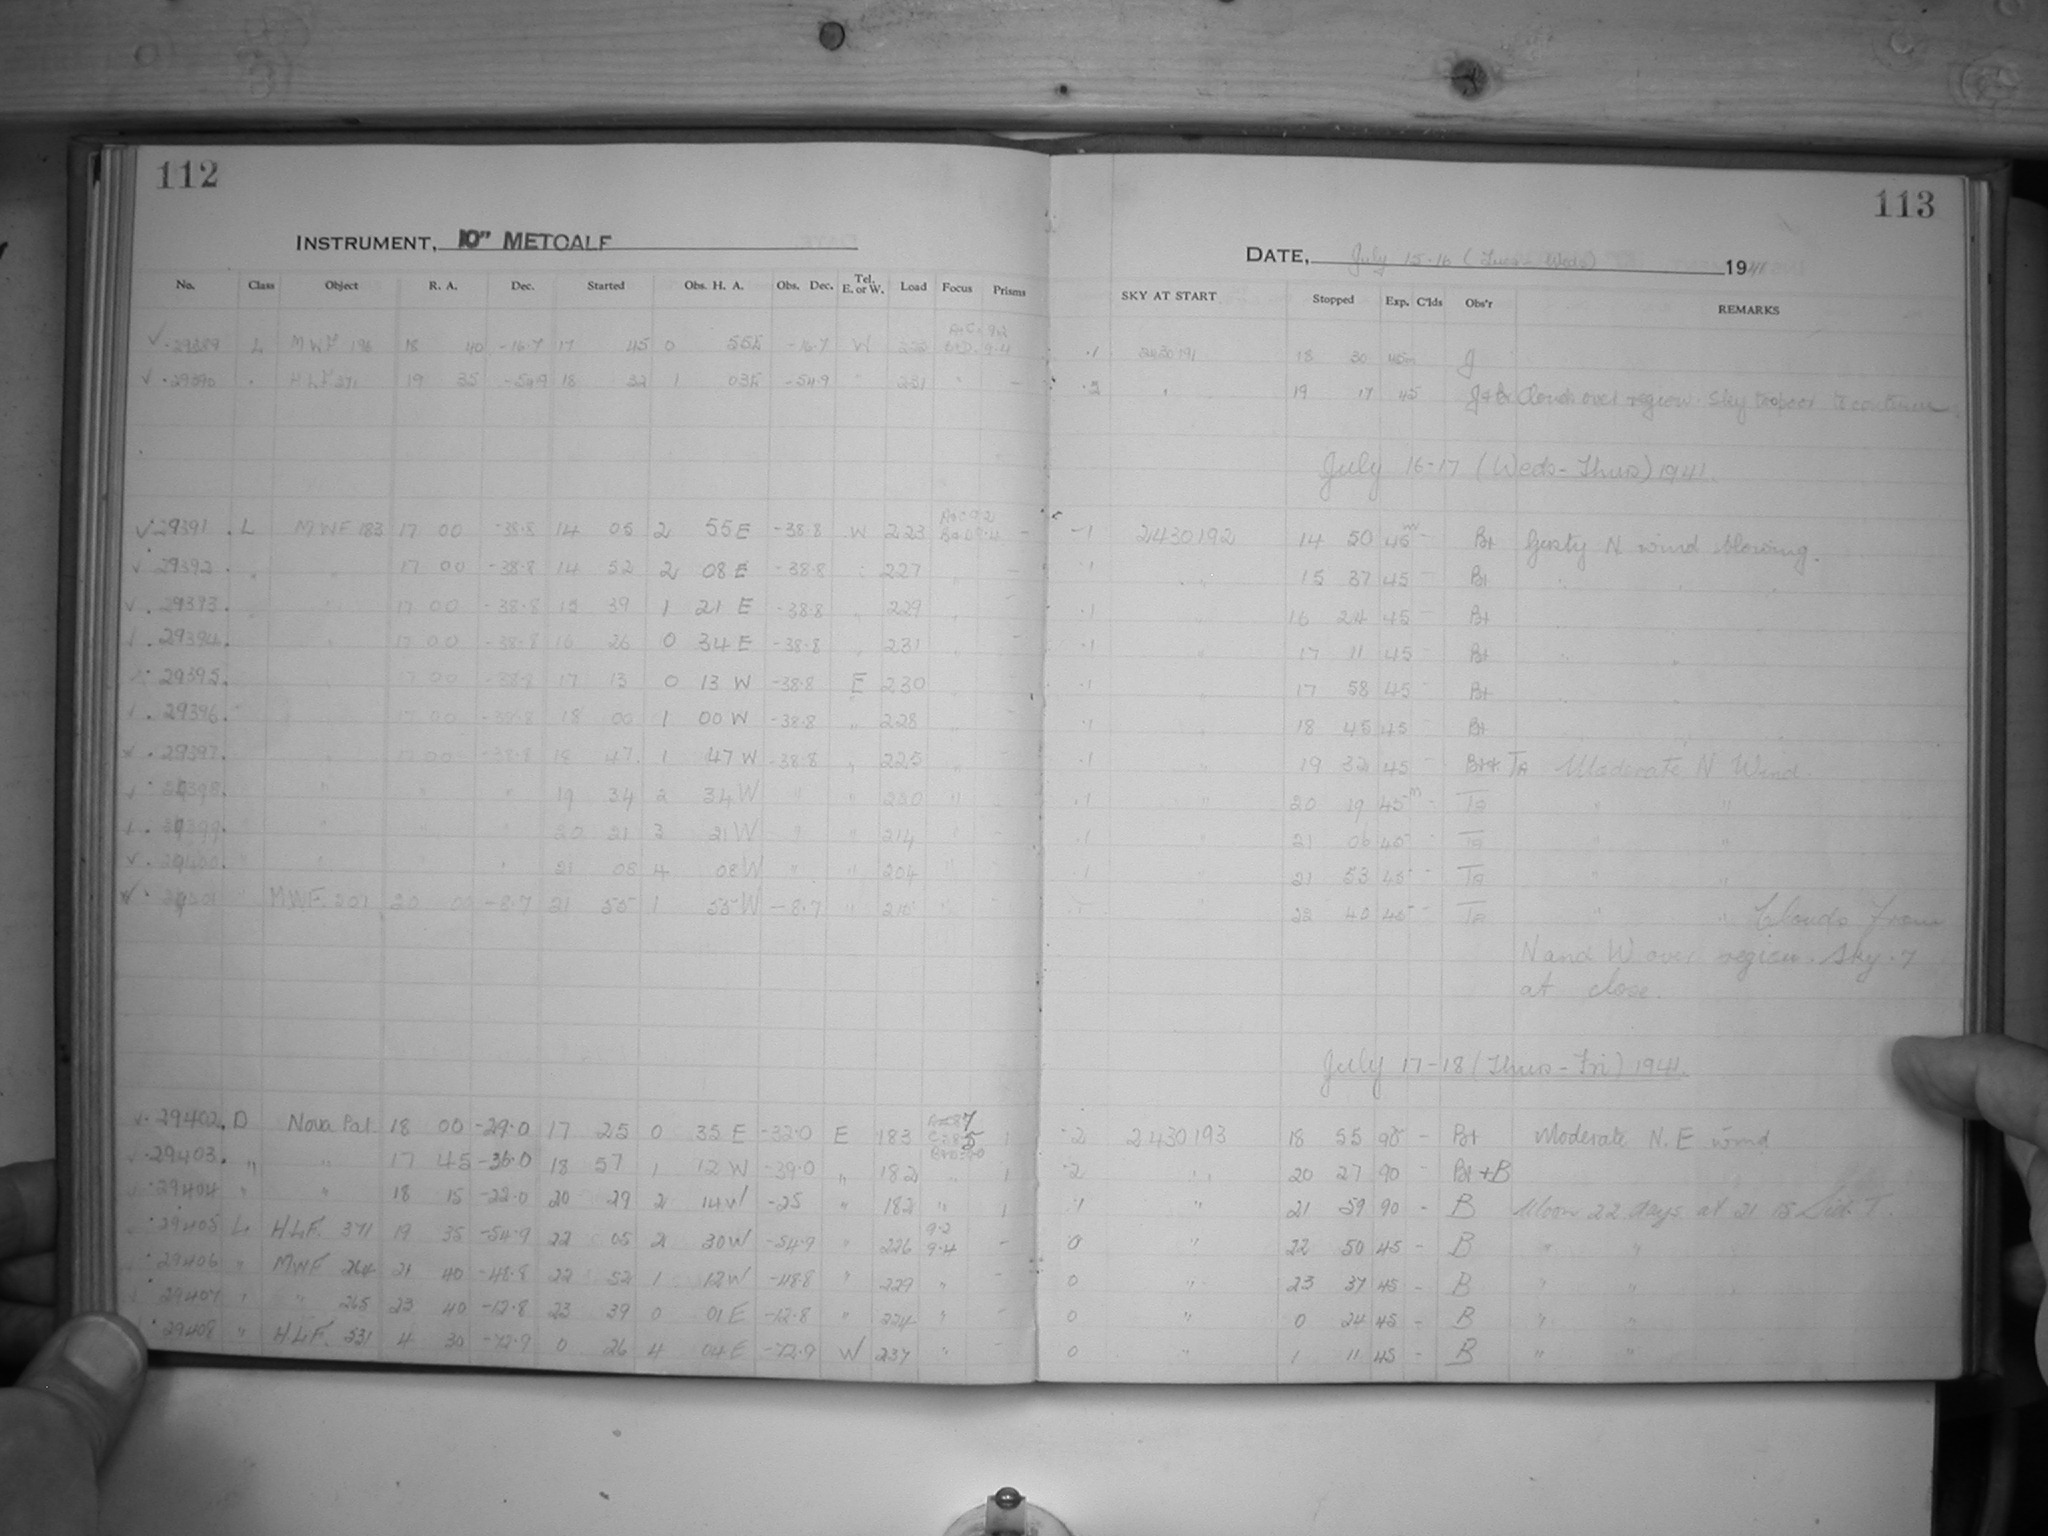 112
113
INSTRUMENT, 10" METCALF
DATE, July 15-16 (Tues - Weds) 1941
No. Class Object R. A. Dec. Started Obs. H. A. Obs. Dec. Tel. E. or W. Load Focus Prisms SKY AT START Stopped Exp. C'lds Obs'r REMARKS
29389 L MWF 196 18 40 -16.7 17 45 0 55E -16.7 W .1 2430191 18 30 45m J
29390 HLF 371 19 35 -54.9 18 32 1 03E -54.9 " 231 " - .2 " 19 17 45 J+Bt Clouds over region. Sky too poor to continue.
July 16-17 (Weds-Thurs) 1941.
29391 L MWF 183 17 00 -38.8 14 05 2 55E -38.8 W 223 - .1 2430192 14 50 45m - Bt Gusty N wind blowing.
29392 " " 17 00 -38.8 14 52 2 08E -38.8 " 227 " - .1 " 15 37 45 - Bt " " "
29393 " " 17 00 -38.8 15 39 1 21 E -38.8 " 229 " - .1 " 16 24 45 - Bt
29394 " 17 00 -38.8 16 26 0 34E -38.8 " 231 " - .1 " 17 11 45 - Bt " "
29395 17 00 -38.8 17 13 0 13 W -38.8 E 230 - .1 " 17 58 45 - Bt
29396 17 00 -38.8 18 00 1 00W -38.8 " 228 " - .1 " 18 45 45 Bt
29397 " 17 00 -38.8 18 47 1 47W -38.8 " 225 " - .1 " 19 32 45 - Bt+TA Moderate N Wind.
29398 " " " 19 34 2 34W " " 220 " - .1 " 20 19 45m - TA " "
29399 " " " 20 21 3 21W " " 214 " - .1 " 21 06 45 - TA " "
29400 " " " " 21 08 4 08W " " 204 " .1 " 21 53 45 - TA " "
" MWF 207 20 00 -8.7 21 55 1 55W -8.7 " " - " 22 40 45 - TA " " Clouds from
N and W over region. Sky .7
at close.
July 17-18 (Thurs-Fri) 1941.
29402 D Nova Pal 18 00 -29.0 17 25 0 35E -32.0 E 183 1 .2 2430193 18 55 90 - Bt Moderate N.E wind
29403 " " 17 45 -36.0 18 57 1 12W -39.0 " 182 " 1 .2 " 20 27 90 - Bt+B
29404 " " 18 15 -22.0 20 29 2 14W -25 " 182 " 1 .1 " 21 59 90 - B Moon 22 days at 21 15 Sid. T.
29405 L HLF. 371 19 35 -54.9 22 05 2 30W -54.9 " 226 9.2 9.4 - 0 " 22 50 45 - B " "
29406 " MWF 264 21 40 -48.8 22 52 1 12W -48.8 " 229 " - 0 " 23 37 45 - B " "
29407 " " 265 23 40 -12.8 23 39 0 01E -12.8 " 224 " - 0 " 0 24 45 - B " "
29408 " HLF. 531 4 30 -72.9 0 26 4 04E -72.9 W 237 " - 0 " 1 11 45 - B " "